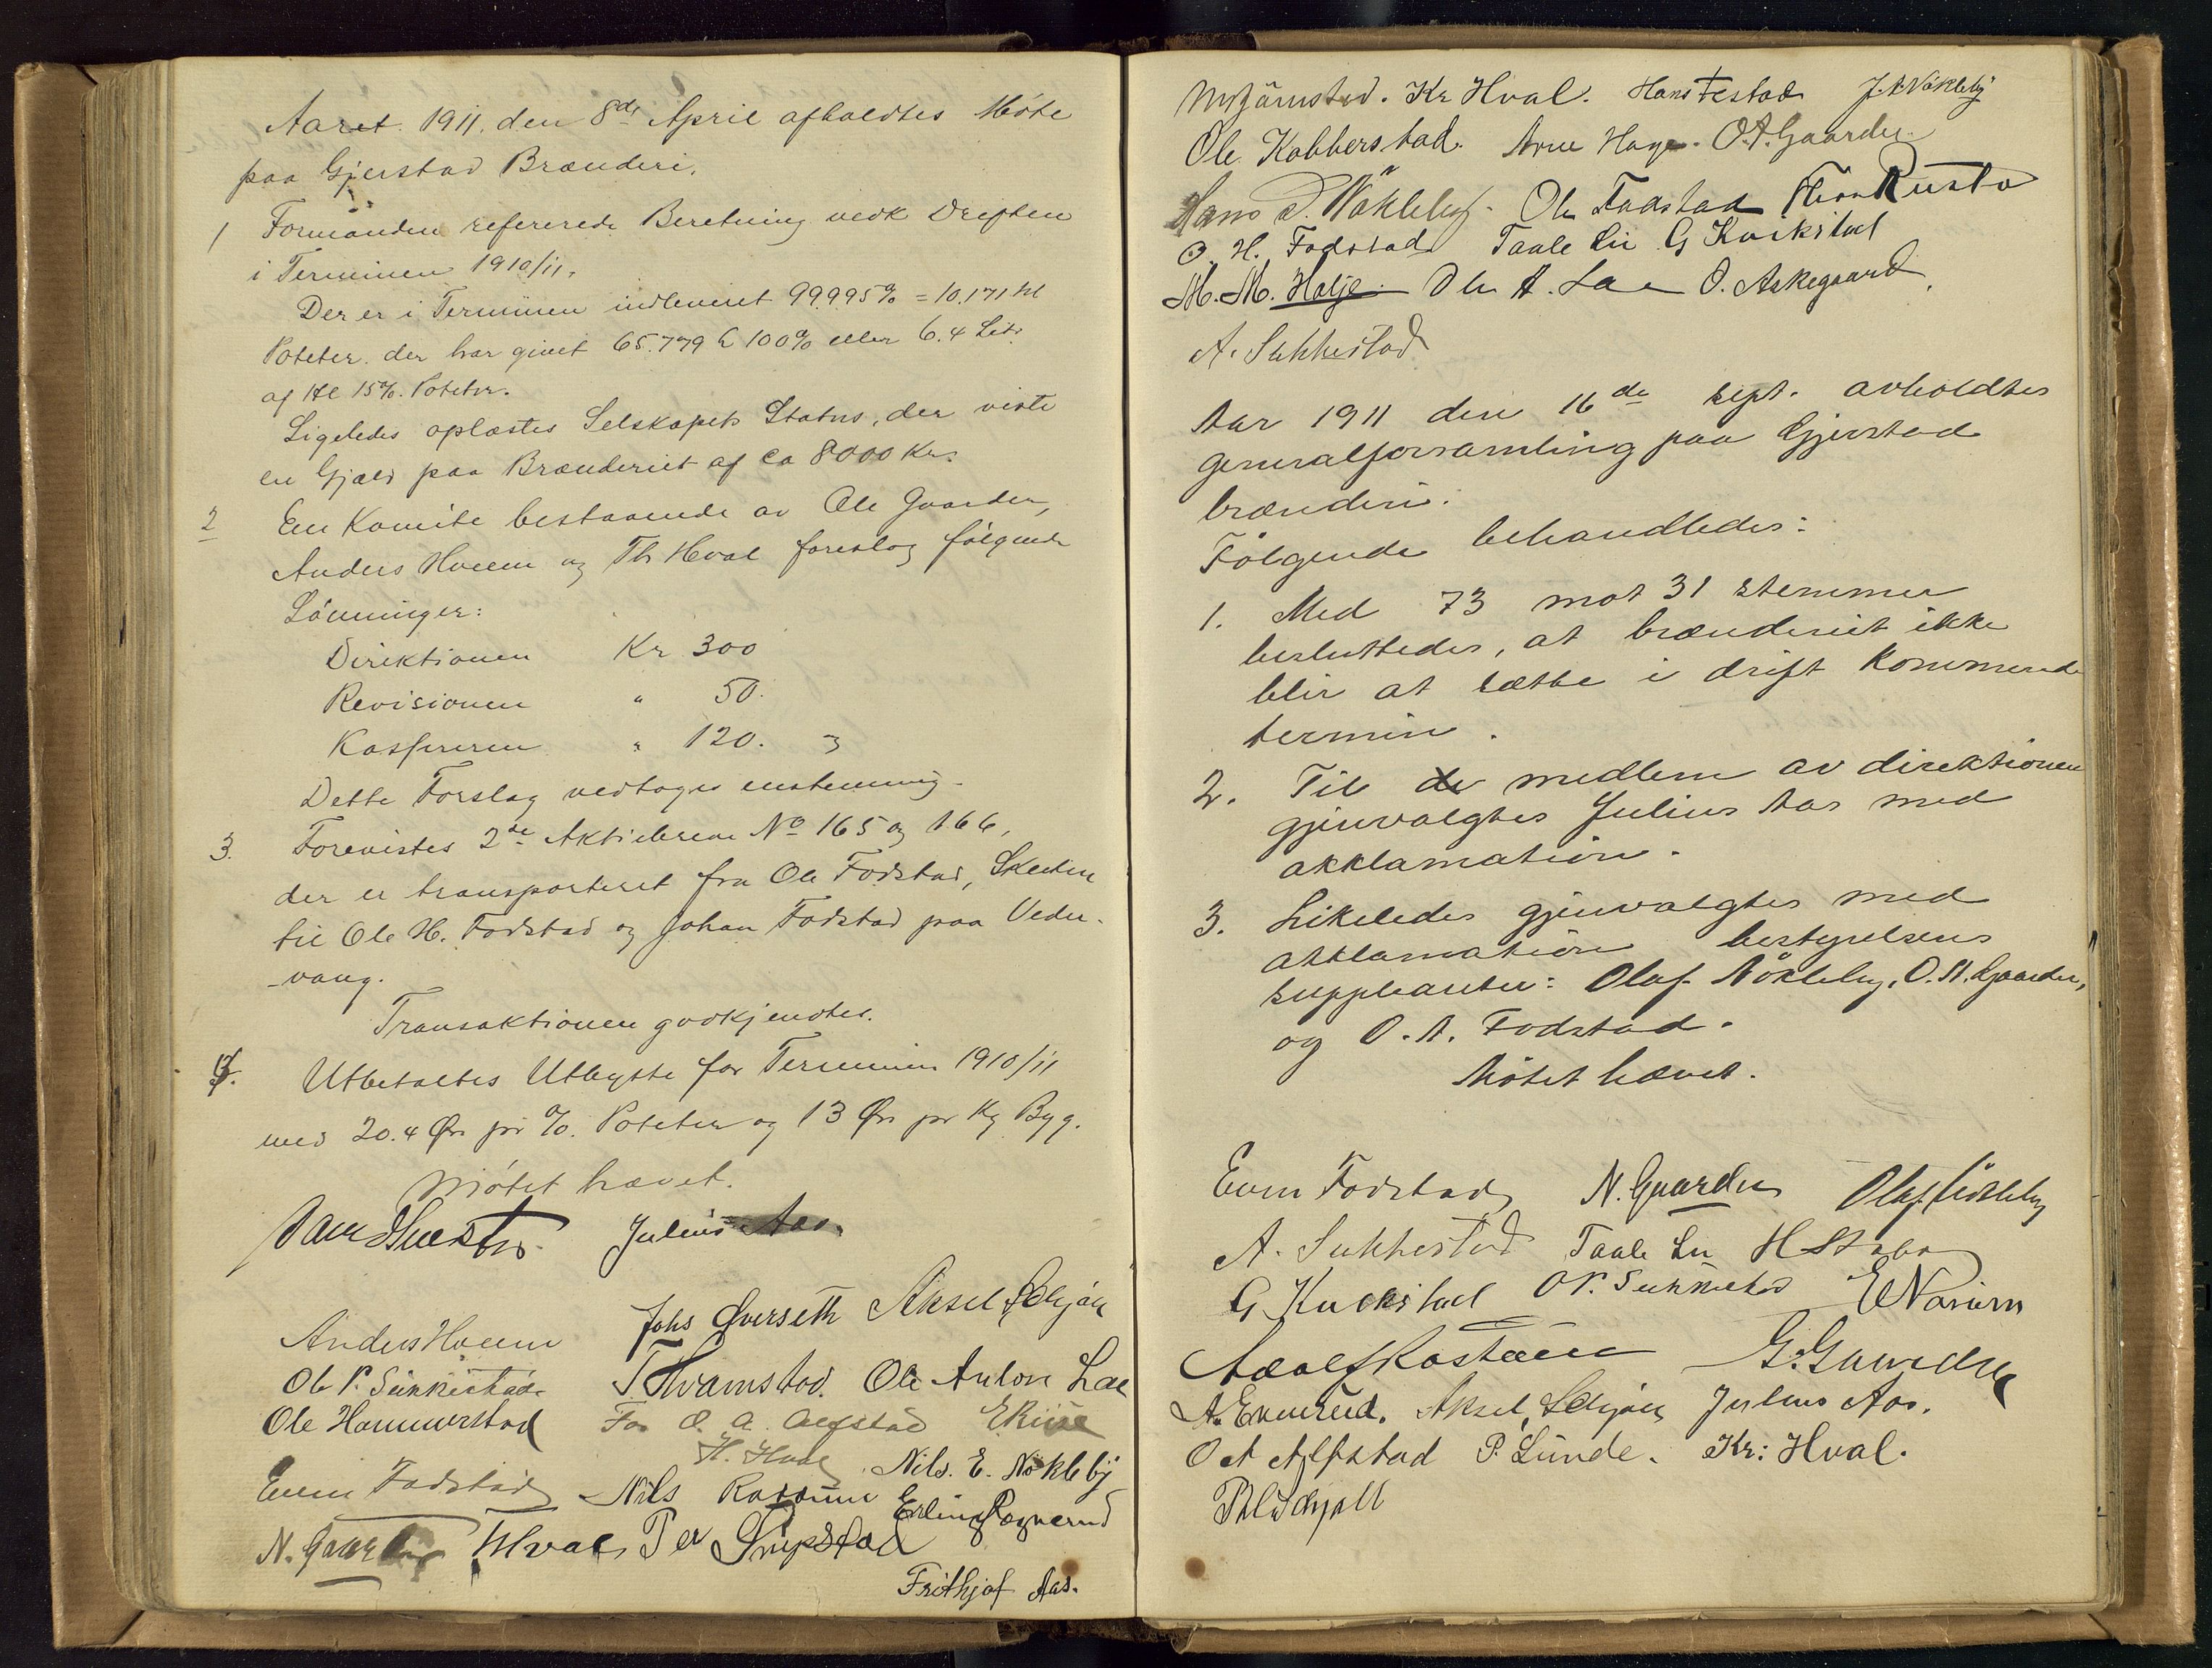 Aaret 1911. den 8de April afholdtes Möte
paa Gjerstad Brænderi.
1 Formanden refererede Beretning vedk Driften
i Terminen 1910/11.
Der er i Terminen indleveret 99995% = 10.171 hl
Poteter der har givet 65.779 L 100% eller 6.4 Liter
af Hl 15%. Poteter.
Ligeledes oplæstes Selskapets Status, der viste
en Gjæld paa Brænderiet af ca 8000 Kr.
2 En Komite bestaaende av Ole Gaarder,
Anders Hveem og Th Hval foreslog fölgende
Lönninger:
Direktionen Kr 300
Revisionen " 50.
Kassereren " 120.
Dette Forslag vedtoges enstemmig.
3. Forevistes 2de Aktiebreve No 165 og 166,
der er transporteret fra Ole Fodstad, Skeden
til Ole H. Fodstad og Johan Fodstad paa Veder-
-vang.
Transaktionen godkjendtes.
Utbetaltes Utbytte for Terminen 1910/11
med 20.4 Øre pr %. Poteter og 13 Øre pr Kg Byg.
Mötet hævet.
Julius Aas.
Johs Øverseth Aksel Schjöll
Anders Hveem
Ole P. Sukkestad T Hvamstad. Ole Anton Lae
Ole Hammerstad For O. A. Alfstad E Riise
H. Hval Nils. E. Nökleby
Even Fodstad Nils Erling Rognerud
N. Gaarder T Hval Per
Frithjof Aas.
M Gjärnstad. Kr Hval. Hans Festad J. A Nökleby
Ole Kobberstad. Arne Hage. O. A. Gaarder.
Hans P. Nökleby. Ole Fodstad Rustad
O. H. Fodstad Taale Lie G Kvikstad
M. M. Holje Ole A. Lae O. Askegaard.
A. Sukkestad
Aar 1911 den 16de sept. avholdtes
generalforsamling paa Gjerstad
brænderi.
Fölgende behandledes:
1. Med 73 mot 31 stemmer
besluttedes, at brænderiet ikke
blir at sætte i drift kommende
termin.
2. Til medlem av direktionen
gjenvalgtes Julius Aas med
akklamation.
3. Likeledes gjenvalgtes med
akklamation bestyrelsens
suppleanter: Olaf Nökleby, O. A. Gaarder,
og O. A. Fodstad.
Mötet hævet.
Even Fodstad N. Gaarder Olaf Nökleby
A. Sukkestad Taale Lie
G Kvikstad O P. Sukkestad
G. Gaarder
A. Evenrud. Aksel Schjöll Julius Aas.
O A Alfstad P. Lunde. Kr: Hval.